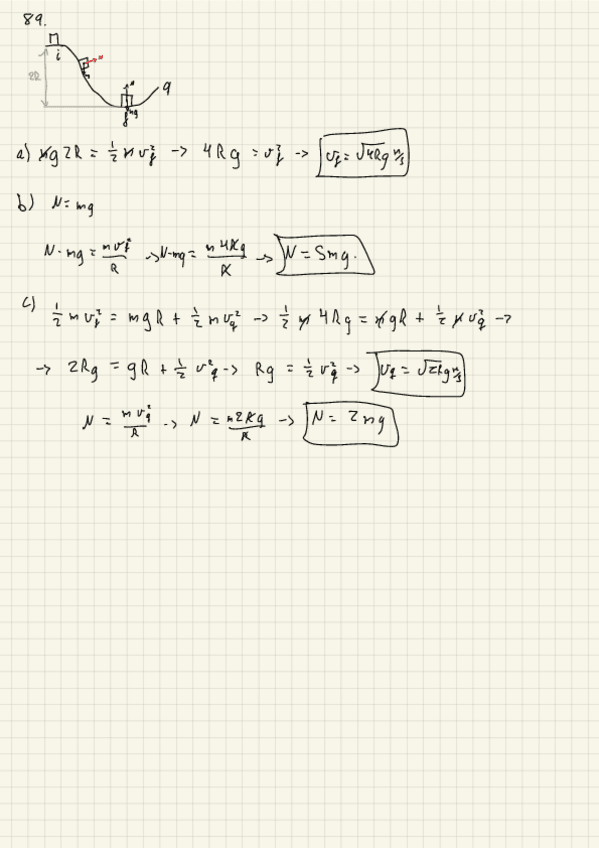 89.
i
n
2R
N
q
mg
f
a) mg2R = 1/2 m v_f² -> 4Rg = v_f² -> v_f = √4Rg m/s
b) N = mg
N - mg = m v_f²/R -> N-mg = m4Rg/R -> N = 5mg.
c) 1/2 m v_f² = mgR + 1/2 m v_q² -> 1/2 m 4Rg = mgR + 1/2 m v_q² ->
-> 2Rg = gR + 1/2 v_q² -> Rg = 1/2 v_q² -> v_q = √2Rg m/s
N = m v_q²/R -> N = m2Rg/R -> N = 2mg